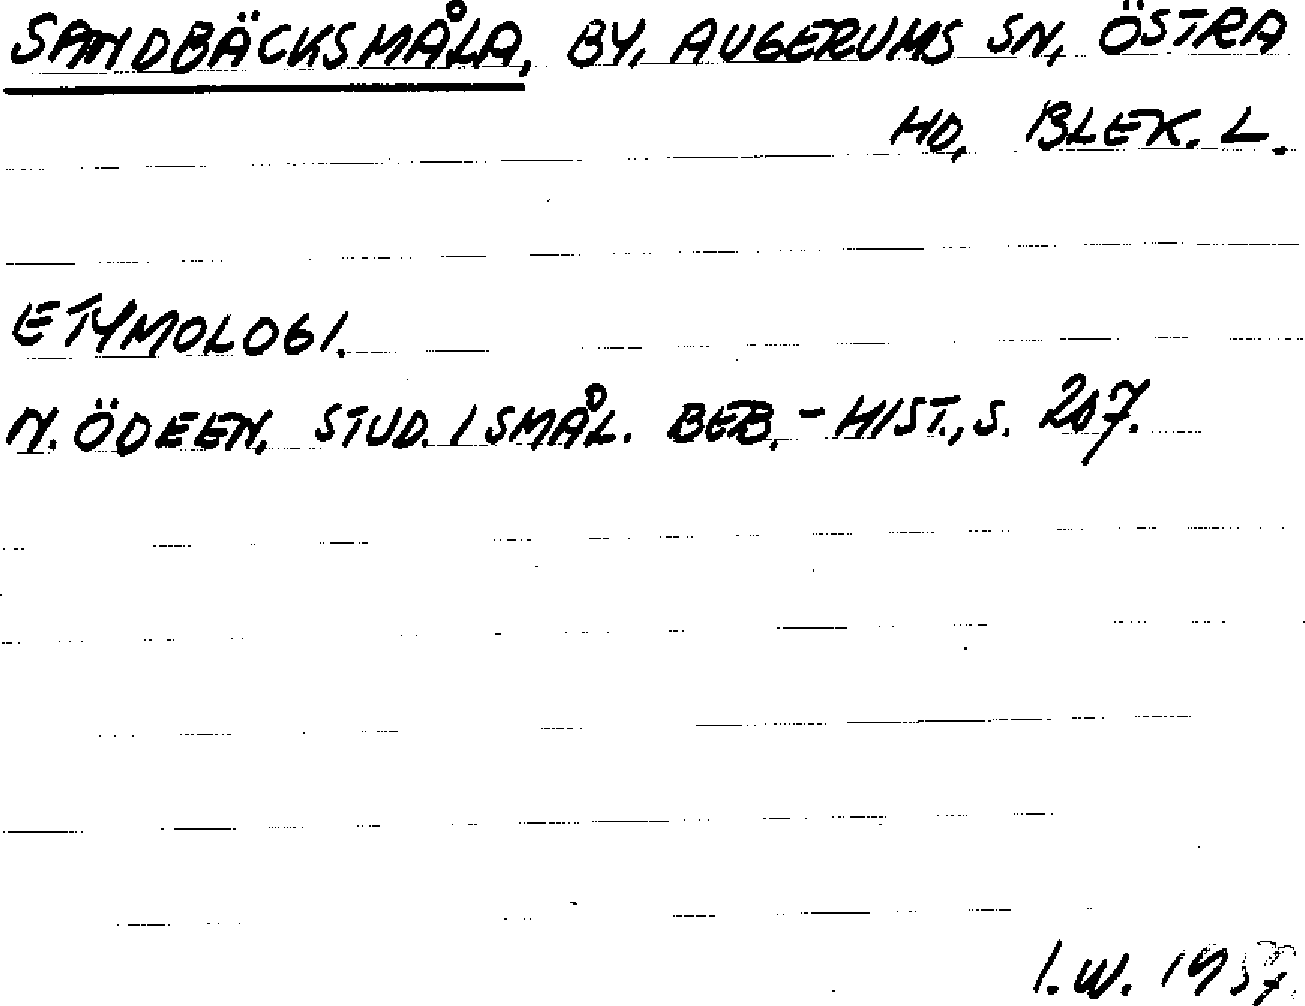 SANDBÄCKSMÅLA, BY, AUGERUMS SN, ÖSTRA
HD, BLEK. L.
ETYMOLOGI.
N. ÖDEEN, STUD. I SMÅL. BEB.-HIST., S. 207.
I.W.